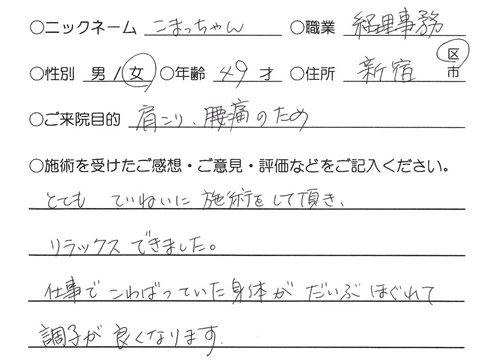 ○ニックネーム こまっちゃん ○職業 経理事務
○性別 男/女 ○年齢 49才 ○住所 新宿 区市
○ご来院目的 肩こり、腰痛のため
○施術を受けたご感想・ご意見・評価などをご記入ください。
とても ていねいに 施術をして頂き、
リラックス できました。
仕事で こわばっていた身体が だいぶ ほぐれて
調子が 良くなります.